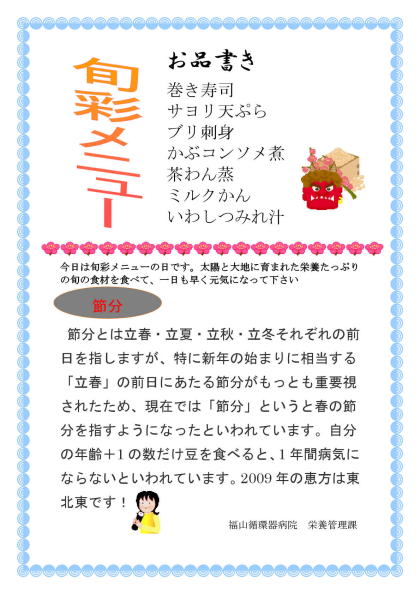 旬彩メニュー
お品書き
巻き寿司
サヨリ天ぷら
ブリ刺身
かぶコンソメ煮
茶わん蒸
ミルクかん
いわしつみれ汁
今日は旬彩メニューの日です。太陽と大地に育まれた栄養たっぷり
の旬の食材を食べて、一日も早く元気になって下さい
節分
節分とは立春・立夏・立秋・立冬それぞれの前
日を指しますが、特に新年の始まりに相当する
「立春」の前日にあたる節分がもっとも重要視
されたため、現在では「節分」というと春の節
分を指すようになったといわれています。自分
の年齢＋1の数だけ豆を食べると、1年間病気に
ならないといわれています。2009年の恵方は東
北東です！
福山循環器病院　栄養管理課